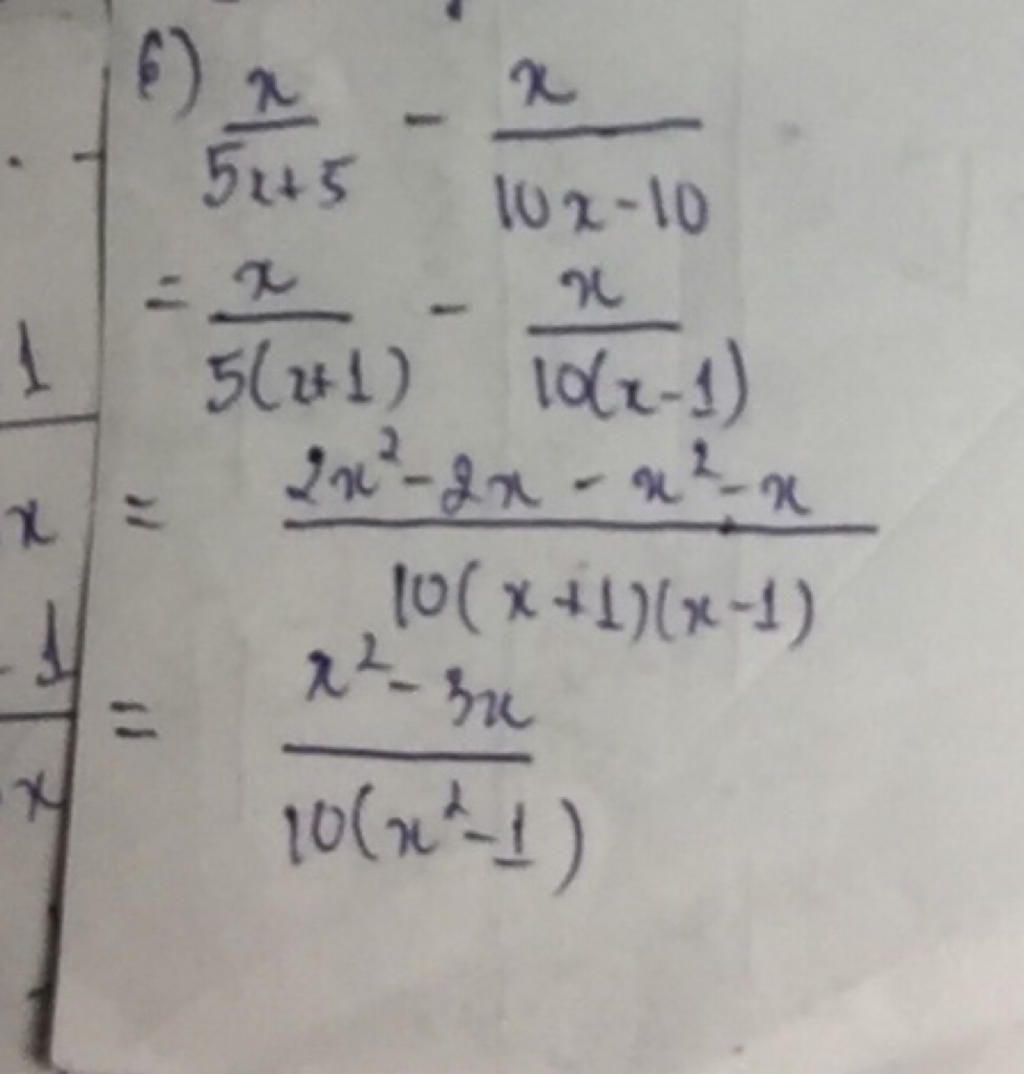 6) x/(5x+5) - x/(10x-10)
= x/(5(x+1)) - x/(10(x-1))
= (2x²-2x-x²-x)/(10(x+1)(x-1))
= (x²-3x)/(10(x²-1))
1
x
-1
x